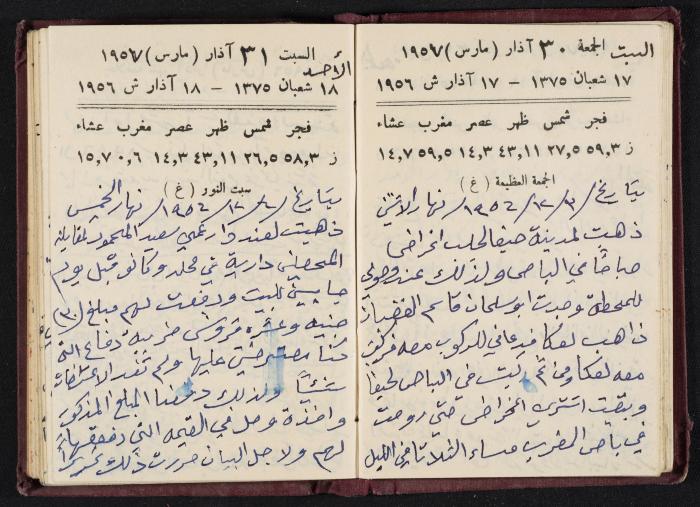 السبت الجمعة ٣٠ آذار (مارس) ١٩٥٧
١٧ شعبان ١٣٧٥ – ١٧ آذار ش ١٩٥٦
فجر شمس ظهر عصر مغرب عشاء
ز ٥٩,٣ ٢٧,٥ ٤٣,١١ ١٤,٣ ٥٩,٥ ١٤,٧
الجمعة العظيمة (غ)
بتاريخ ٣/١٢/١٩٥٤/ نهار الاثنين
ذهبت لمدينة حيفا لجلب اغراض
صباحًا في الباص ولذلك عند وصولي
للمحطة وجدت ابو سلمان قاسم
ذاهب لعكا فدعاني للركوب معه فركبت
معه لعكا ومن ثم ركبت في الباص لحيفا
وبقيت اشتري اغراض حتى روحت
في باص المغرب مساء الثلاثا في الليل
السبت ٣١ آذار (مارس) ١٩٥٧
الأحد
١٨ شعبان ١٣٧٥ – ١٨ آذار ش ١٩٥٦
فجر شمس ظهر عصر مغرب عشاء
ز ٥٨,٣ ٢٦,٥ ٤٣,١١ ١٤,٣ ٠,٦ ١٥,٧
سبت النور (غ)
بتاريخ /١٢/١٩٥٤/ نهار الخميس
ذهبت لعند دار عمي سعد المحمود لمقابلة
في محله وكانو قبل يوم
جايين للبيت ودفعت لهم مبلغ (٣٠)
جنيه وعشره قروش ضريبة دفاع التي
كنا معترضين عليها ولم تفد الاعتراضات
شيئًا ولذلك دفعنا المبلغ المذكور
واخذة وصل في القيمه التي دفعتها
لهم ولاجل البيان حررت ذلك تحريرًا